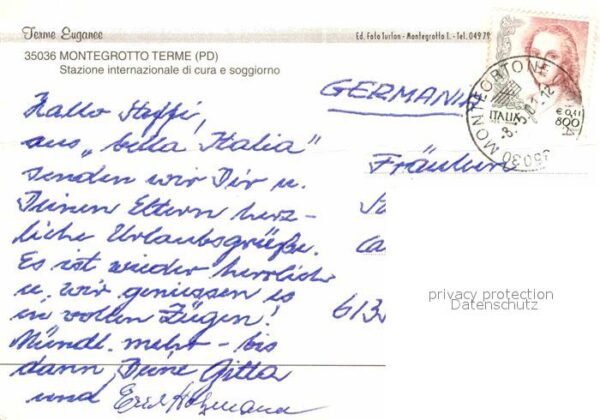 Terme Euganee
Ed. Foto Turlon - Montegrotto T. - Tel. 049 79
35036 MONTEGROTTO TERME (PD)
Stazione internazionale di cura e soggiorno
GERMANIA
Hallo Steffi,
aus „bella Italia"
senden wir Dir u.
Deinen Eltern herz-
liche Urlaubsgrüße.
Es ist wieder herrlich
u. wir geniessen es
in vollen Zügen!
Mündl. mehr - bis
dann Deine Gitta
und Erich
Fräulein
613
ITALIA
€ 0,41
800
35030 MONTEORTONE
privacy protection
Datenschutz